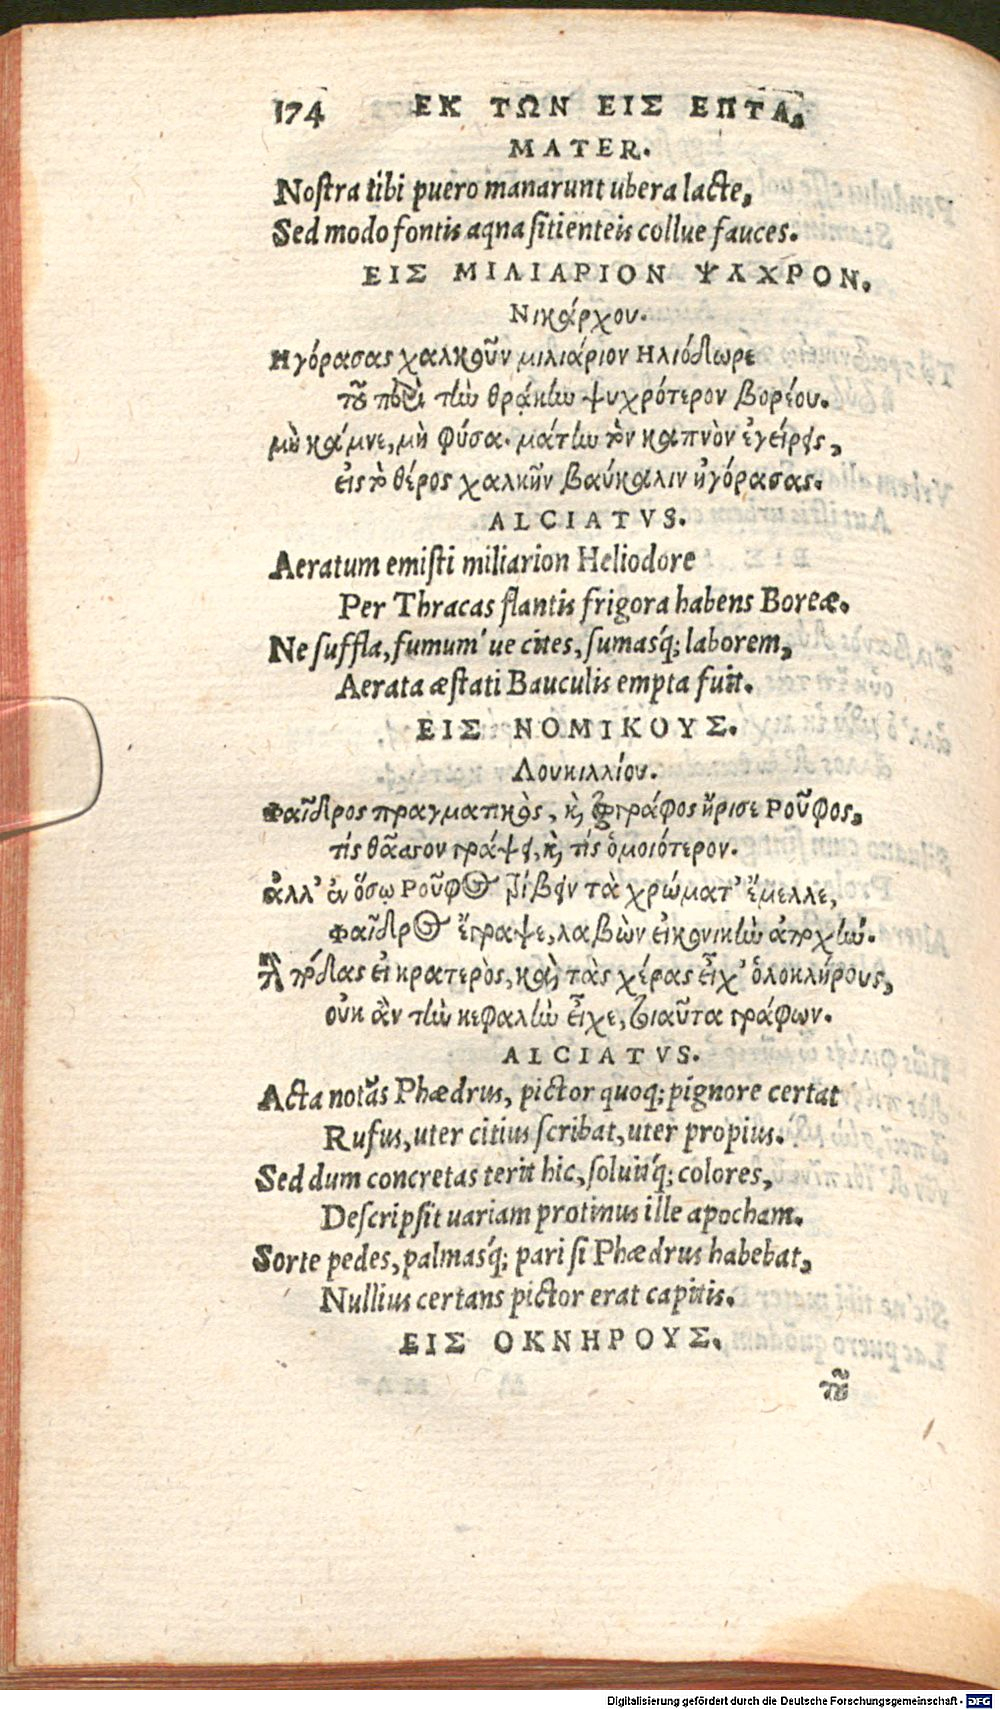 174 ΕΚ ΤΩΝ ΕΙΣ ΕΠΤΑ.
MATER.
Noſtra tibi puero manarunt ubera lacte,
Sed modo fontis aqna ſitienteis collue fauces.
ΕΙΣ ΜΙΛΙΑΡΙΟΝ ΨΛΧΡΟΝ.
Νικάρχου.
Ηγόρασας χαλκοῦν μιλιάριον Ηλιόδωρε
τοῦ τὴν θράκην ψυχρότερον βορέου.
μὴ κάμνε, μὴ φύσα· μάτην τὸν καπνὸν ἐγείρεις,
εἰς τὸ θέρος χαλκῆν βαύκαλιν ἠγόρασας.
ALCIATVS.
Aeratum emiſti miliarion Heliodore
Per Thracas flantis frigora habens Boreæ.
Ne ſuffla, fumum' ue cites, ſumasq́; laborem,
Aerata æſtati Bauculis empta fuit.
ΕΙΣ ΝΟΜΙΚΟΥΣ.
Λουκιλλίου.
Φαῖδρος πραγματικὸς, καὶ ζωγράφος ἤρισε Ροῦφος,
τίς θᾶσσον γράψει, καὶ τίς ὁμοιότερον.
ἀλλ' ἐν ὅσῳ Ροῦφος τρίβειν τὰ χρώματ' ἔμελλε,
Φαῖδρος ἔγραψε, λαβὼν εἰκονικὴν ἀποχήν.
πόδας εἰ κρατερὸς, καὶ τὰς χέρας εἶχ' ὁλοκλήρους,
οὐκ ἂν τὴν κεφαλὴν εἶχε, τοιαῦτα γράφων.
ALCIATVS.
Acta notãs Phædrus, pictor quoq; pignore certat
Rufus, uter citius ſcribat, uter propius.
Sed dum concretas terit hic, ſoluitq́; colores,
Deſcripſit uariam protinus ille apocham.
Sorte pedes, palmasq́; pari ſi Phædrus habebat,
Nullius certans pictor erat capitis.
ΕΙΣ ΟΚΝΗΡΟΥΣ.
τοῦ
Digitalisierung gefördert durch die Deutsche Forschungsgemeinschaft - DFG